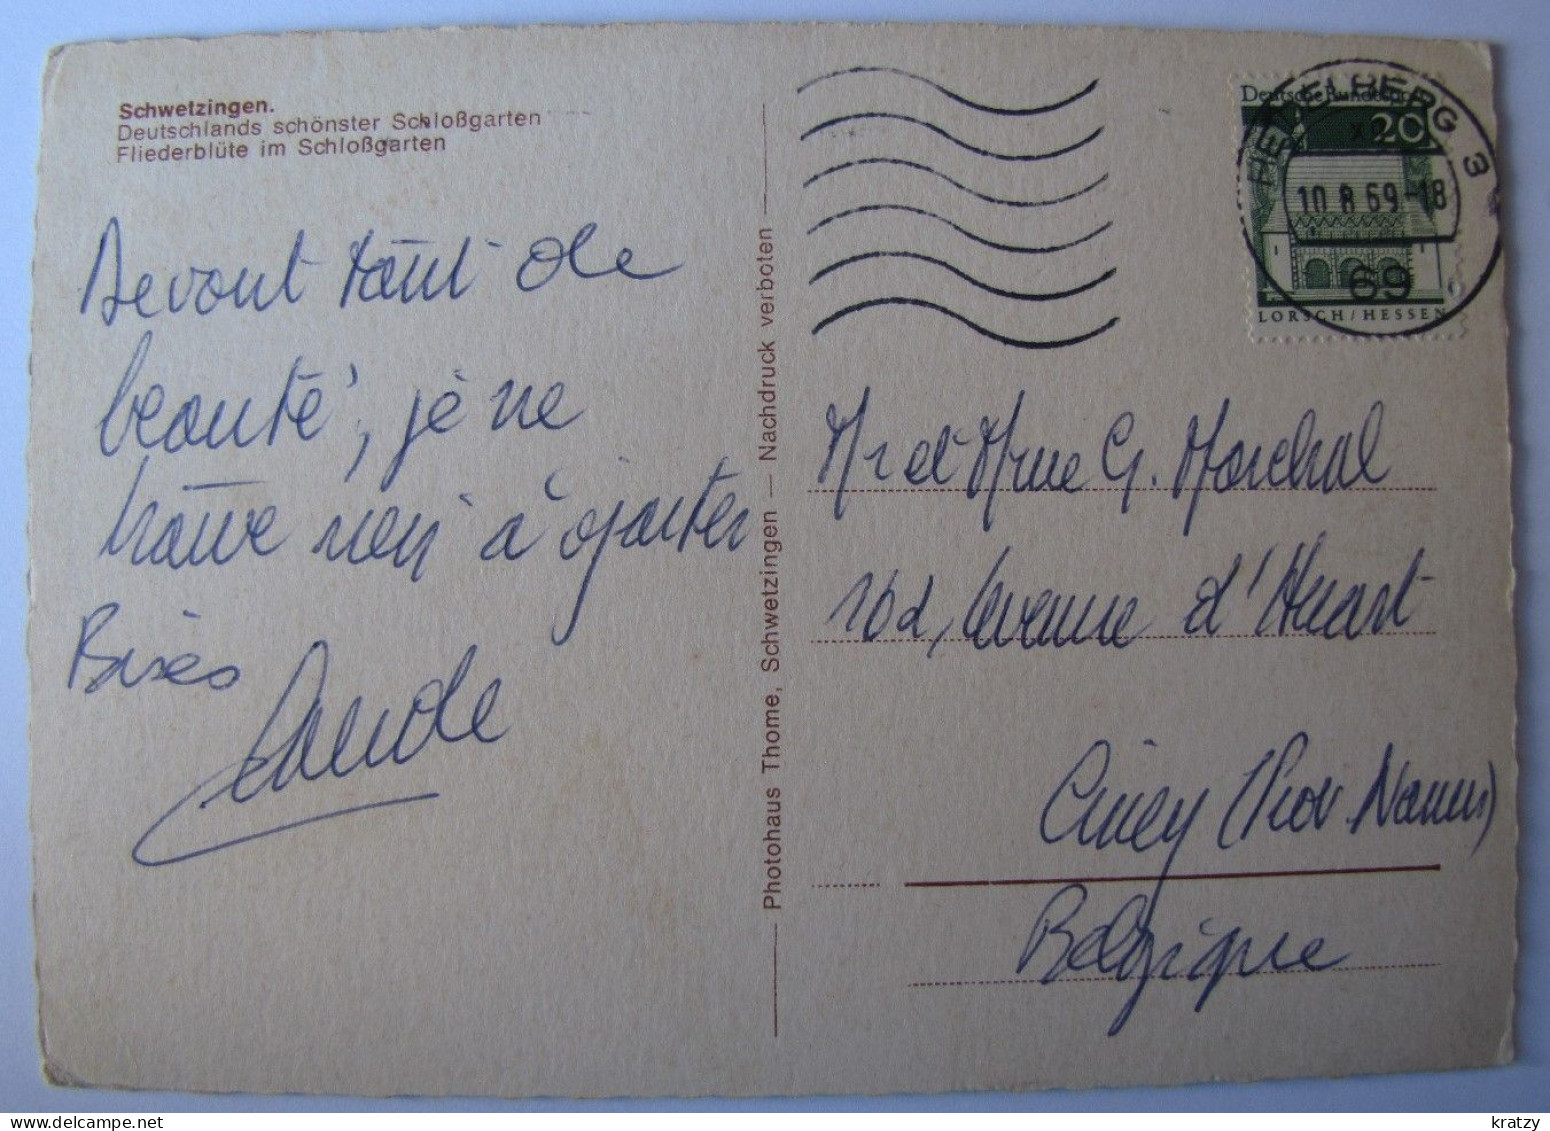 Schwetzingen.
Deutschlands schönster Schloßgarten
Fliederblüte im Schloßgarten
Devant tant de
beauté, je ne
trouve rien à ajouter
Bises
Photohaus Thome, Schwetzingen — Nachdruck verboten
Deutsche Bundespost
20
LORSCH/HESSEN
HEIDELBERG 3
10.8.69-18
69
Mr et Mme G. Marchal
Avenue d'Huart
Ciney (Prov. Namur)
Belgique
kratzy